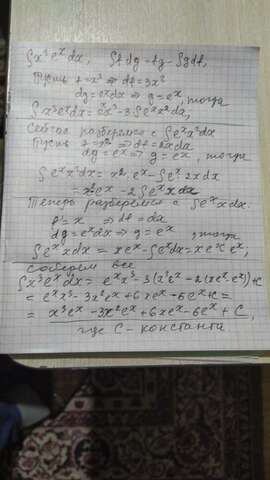 ∫x³eˣdx, ∫fdg=fg-∫gdf,
Пусть f=x³ ⇒ df=3x²
dg=eˣdx ⇒ g=eˣ, тогда
∫x³eˣdx=eˣx³-3∫eˣx²dx;
Сейчас разберёмся с ∫eˣx²dx
Пусть f=x² ⇒ df=2xdx
dg=eˣ ⇒ g=eˣ, тогда
∫eˣx²dx=x²·eˣ-∫eˣ2xdx
=x²eˣ-2∫eˣxdx
Теперь разберёмся с ∫eˣxdx.
f=x ⇒ df=dx
dg=eˣdx ⇒ g=eˣ, тогда
∫eˣxdx=xeˣ-∫eˣdx=xeˣ-eˣ,
соберем все
∫x³eˣdx=eˣx³-3(x²eˣ-2(xeˣ-eˣ))+C
=eˣx³-3x²eˣ+6xeˣ-6eˣ+C=
=x³eˣ-3x²eˣ+6xeˣ-6eˣ+C,
где C-константа